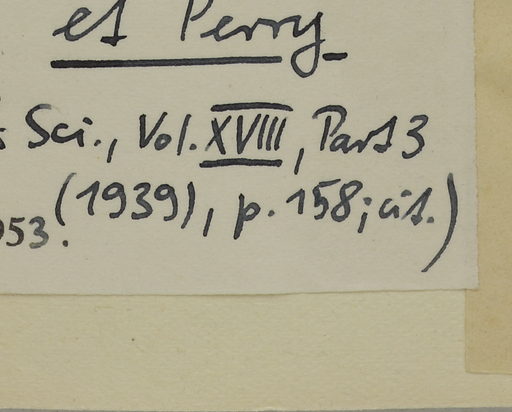 et Perry
Sci., Vol. XVIII, Part 3
(1939), p. 158; cit.)
953.